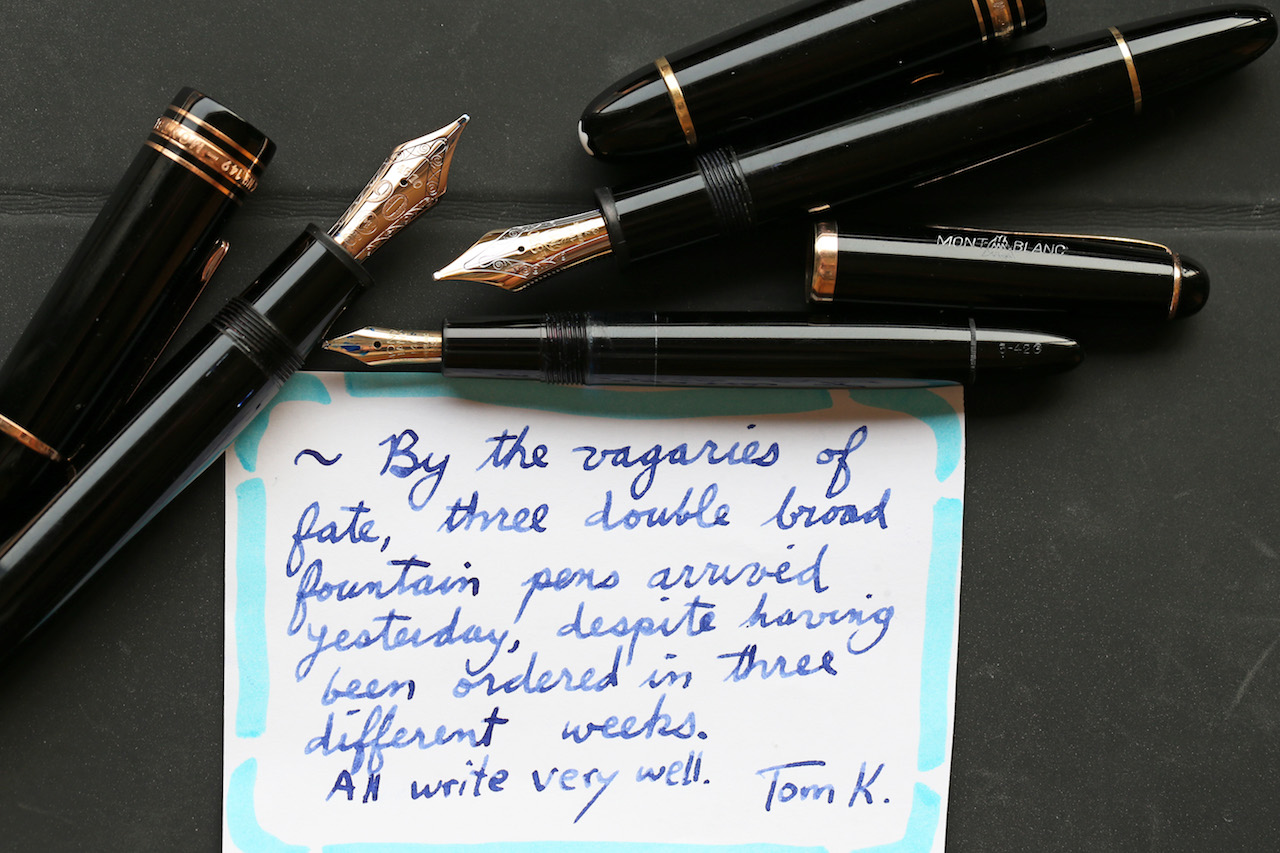 149
MONTBLANC
~ By the vagaries of
fate, three double broad
fountain pens arrived
yesterday, despite having
been ordered in three
different weeks.
All write very well. Tom K.